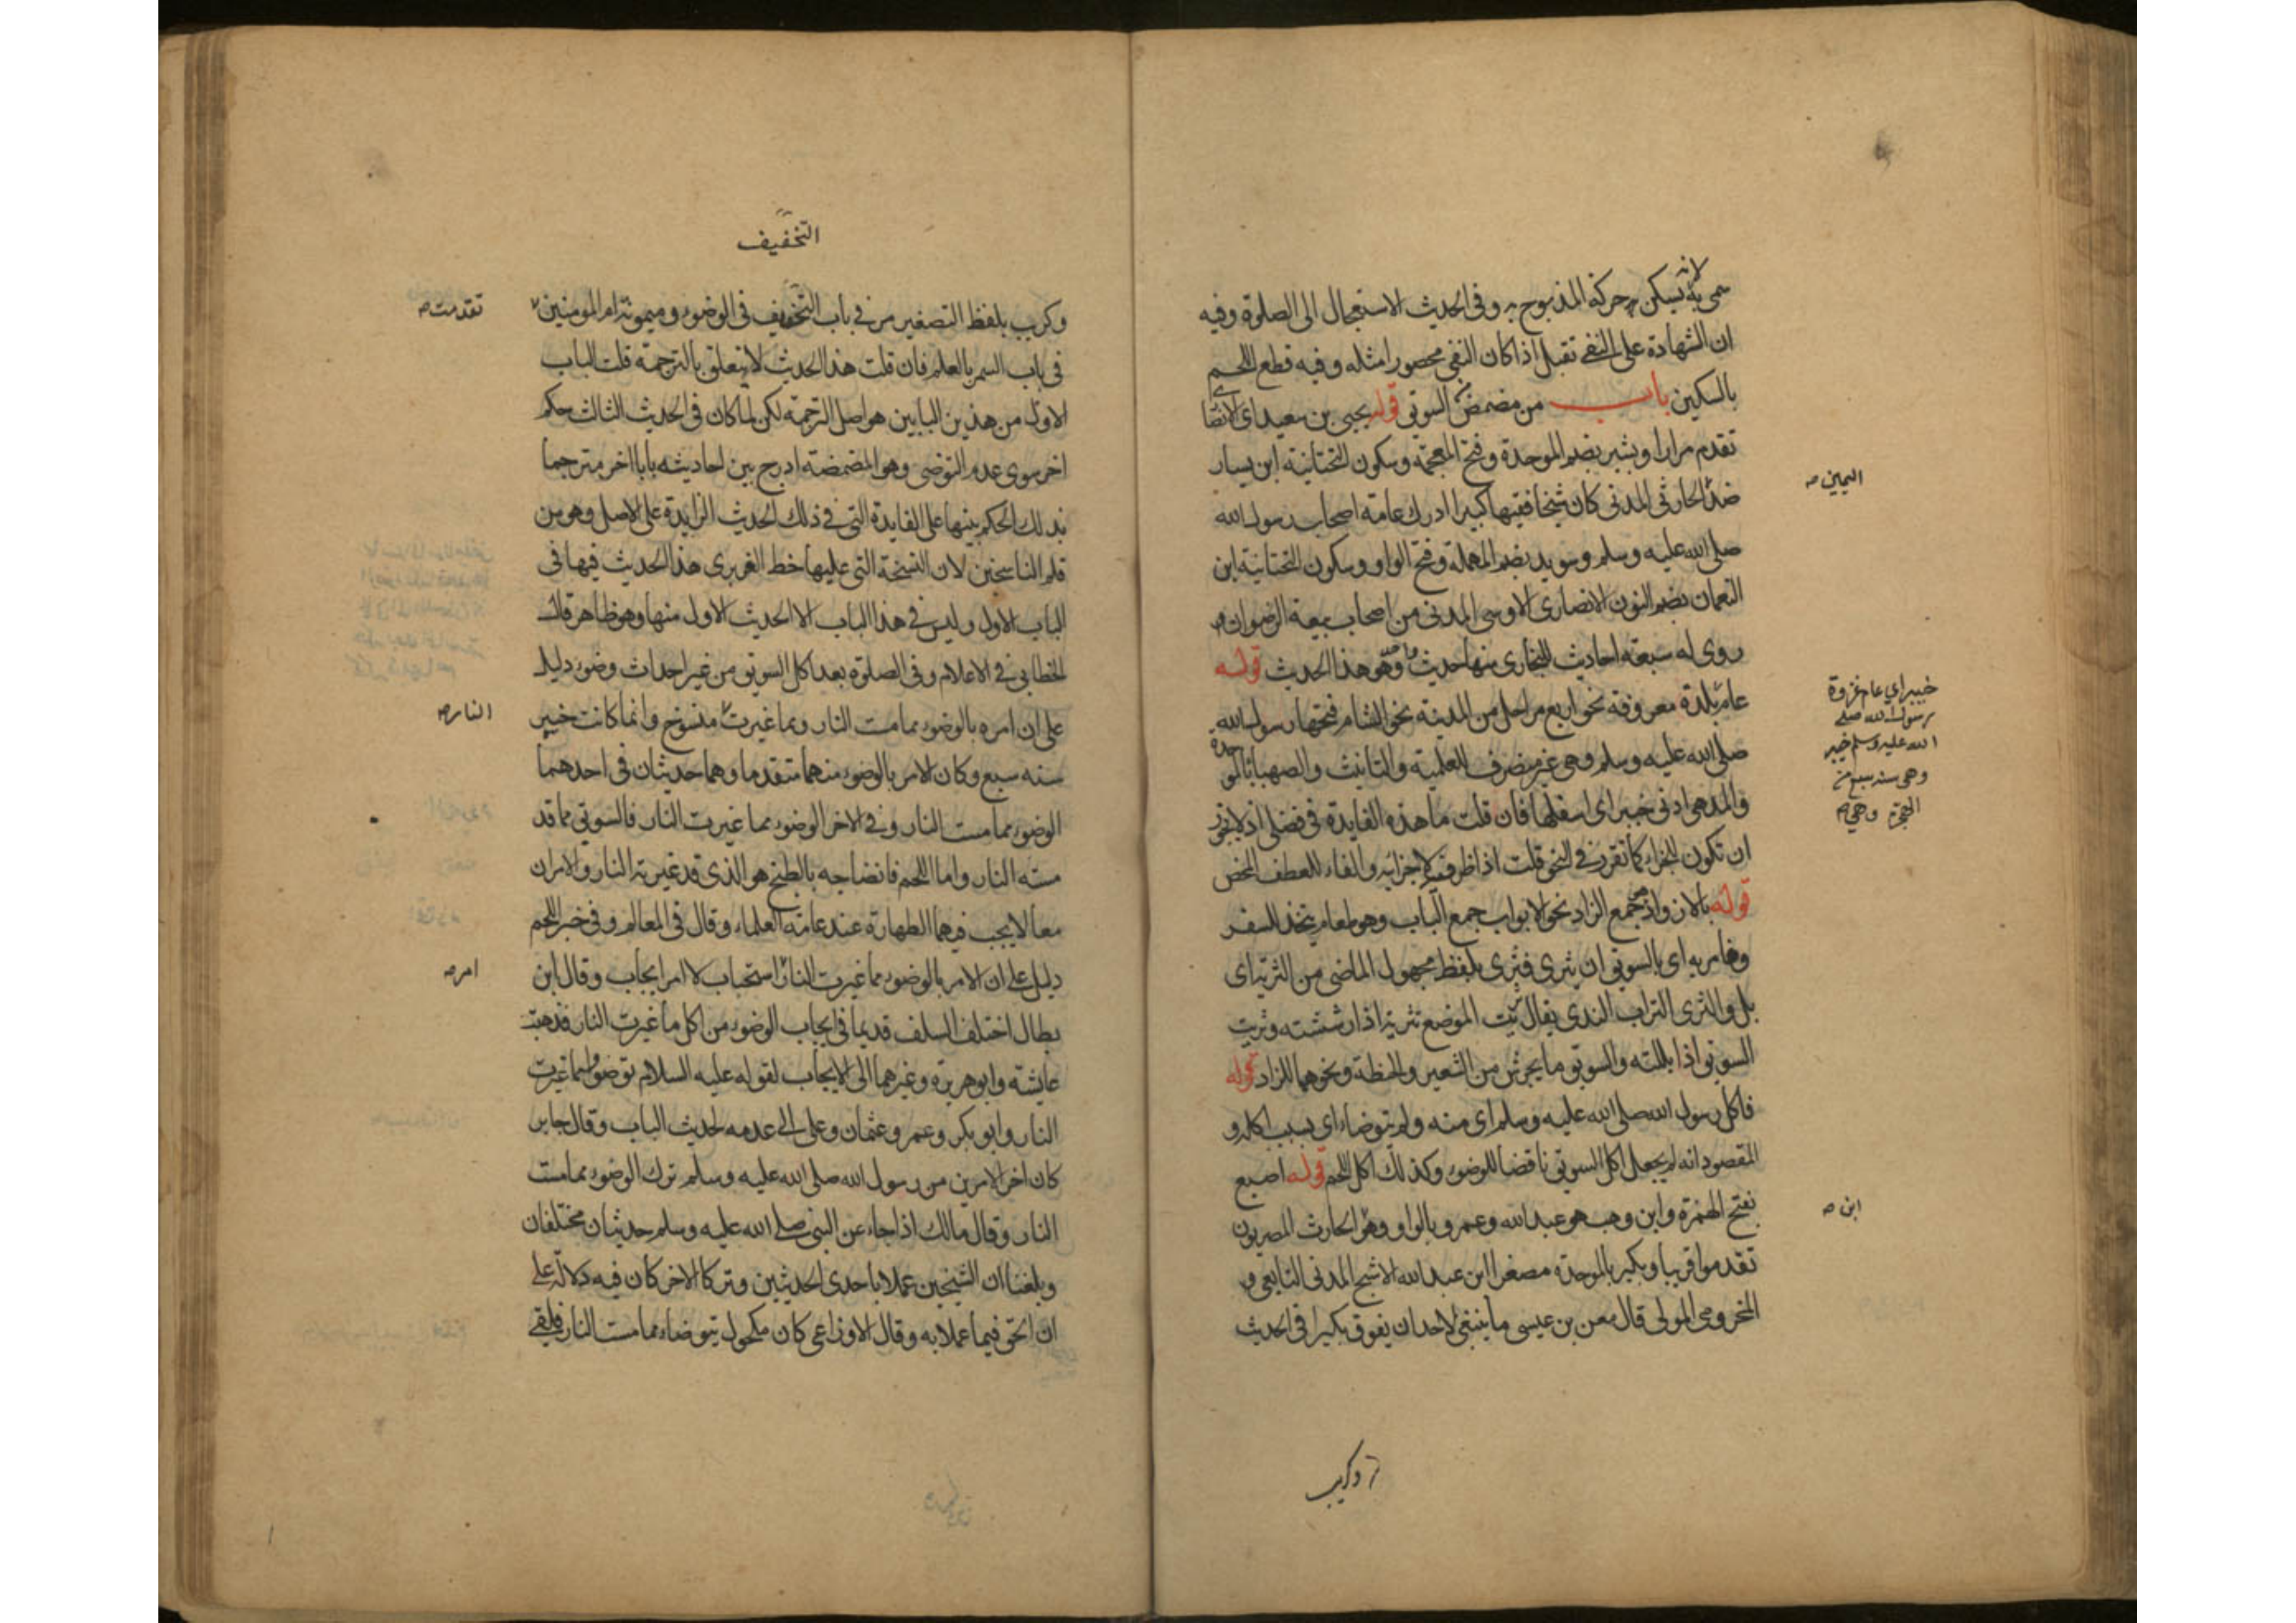 لانه
سمى به يسكن حركة المذبوح وفى الحديث الاستعجال الى الصلوة وفيه
ان الشهادة على النفى تقبل اذا كان النفى محصورا مثله وفيه قطع اللحم
بالسكين باب من مضمض من السويق قوله يحيى بن سعيد اى الانصا
تقدم مرارا وبشير بضم الموحدة وفتح المعجمة وسكون التحتانية ابن يسار
ضد الحارثى المدنى كان شيخا فقيها كبيرا ادرك عامة اصحاب رسول الله
اليمين صه
صلى الله عليه وسلم وسويد بضم المهملة وفتح الواو وسكون التحتانية ابن
النعمان بضم النون الانصارى الاوسى المدنى من اصحاب بيعة الرضوان
روى له سبعة احاديث للبخارى منها حديث واحد وهو هذا الحديث قوله
عام بلدة معروفة نحو اربع مراحل من المدينة نحو الشام فتحها رسول الله
خيبر اي عام غزوة
رسول الله صلى
الله عليه وسلم خيبر
وهى سنة سبع من
الهجرة وهي صه
صلى الله عليه وسلم وهى غير منصرف للعلمية والتانيث والصهبا بالمو
حدة
والمد هى ادنى خيبر اى اسفلها فان قلت ما هذه الفايدة فى فصلى اذ لا يجوز
ان تكون للجزاء كما تقرر فى النحو قلت اذا ظرف لا جزائيه والفاء للعطف المحض
قوله بالازواد جمع الزاد نحو الابواب جمع الباب وهو طعام يتخذ للسفر
وفامر به اى بالسويق ان يثرى فثرى بلفظ مجهول الماضى من التثرية اى
بل والثرى التراب الندى يقال ثريت الموضع تثرية اذا رششته وثريت
السويق اذا بللته والسويق ما يجرش من الشعير والحنطة ونحوهما للزاد قوله
فاكل رسول الله صلى الله عليه وسلم اى منه ولم يتوضاء اى بسبب اكله و
المقصود انه لم يجعل اكل السويق ناقضا للوضوء وكذلك اكل اللحم قوله اصبع
بفتح الهمزة وابن وهب هو عبد الله وعمرو بالواو وهو الحارث المصريون
ابن صه
تقدموا قريبا وبكير بالموحدة مصغرا ابن عبد الله الاشج المدنى التابعى
المخزومى المولى قال معن بن عيسى ما ينبغى لاحد ان يفوق بكيرا فى الحديث
وكريب
التخفيف
وكريب بلفظ التصغير مر فى باب التخفيف فى الوضوء وميمونة ام المومنين
تقدمت صه
فى باب السمر بالعلم فان قلت هذا الحديث لا يتعلق بالترجمة قلت الباب
الاول من هذين البابين هو اصل الترجمة لكن لما كان فى الحديث الثالث حكم
اخر سوى عدم التوضى وهو المضمضة ادرج بين احاديثه بابا اخر مترجما
بذلك الحكم تنبيها على الفايدة التى فى ذلك الحديث الزايدة على الاصل وهو من
قلم الناسخين لان النسخة التى عليها خط الفربرى هذا الحديث فيها فى
الباب الاول وليس فى هذا الباب الا الحديث الاول منها وهو ظاهر قال
الخطابى فى الاعلام وفى الصلوة بعد اكل السويق من غير احداث وضوء دليل
على ان امره بالوضوء مما مست النار ومما غيرت منسوخ وانما كانت خيبر
النار صه
سنة سبع وكان الامر بالوضوء منهما متقدما وهما حديثان فى احدهما
الوضوء مما مست النار وفى الاخر الوضوء مما غيرت النار فالسويق مما قد
مسته النار واما اللحم فانضاجه بالطبخ هو الذى قد غيرته النار والامران
معا لا يجب فيهما الطهارة عند عامة العلماء وقال فى المعالم وفى خبر اللحم
دليل على ان الامر بالوضوء مما غيرت النار استحباب لا امر ايجاب وقال ابن
امر صه
بطال اختلف السلف قديما فى ايجاب الوضوء من اكل ما غيرت النار فذهبت
عايشة وابو هريرة وغيرهما الى الايجاب لقوله عليه السلام توضوا مما غيرت
النار وابو بكر وعمر وعثمان وعلى الى عدمه لحديث الباب وقال جابر
كان اخر الامرين من رسول الله صلى الله عليه وسلم ترك الوضوء مما مست
النار وقال مالك اذا جاء عن النبى صلى الله عليه وسلم حديثان مختلفان
وبلغنا ان الشيخين عملا باحدى الحديثين وتركا الاخر كان فيه دلالة على
ان الحق فيما عملا به وقال الاوزاعى كان مكحول يتوضاء مما مست النار فلقى